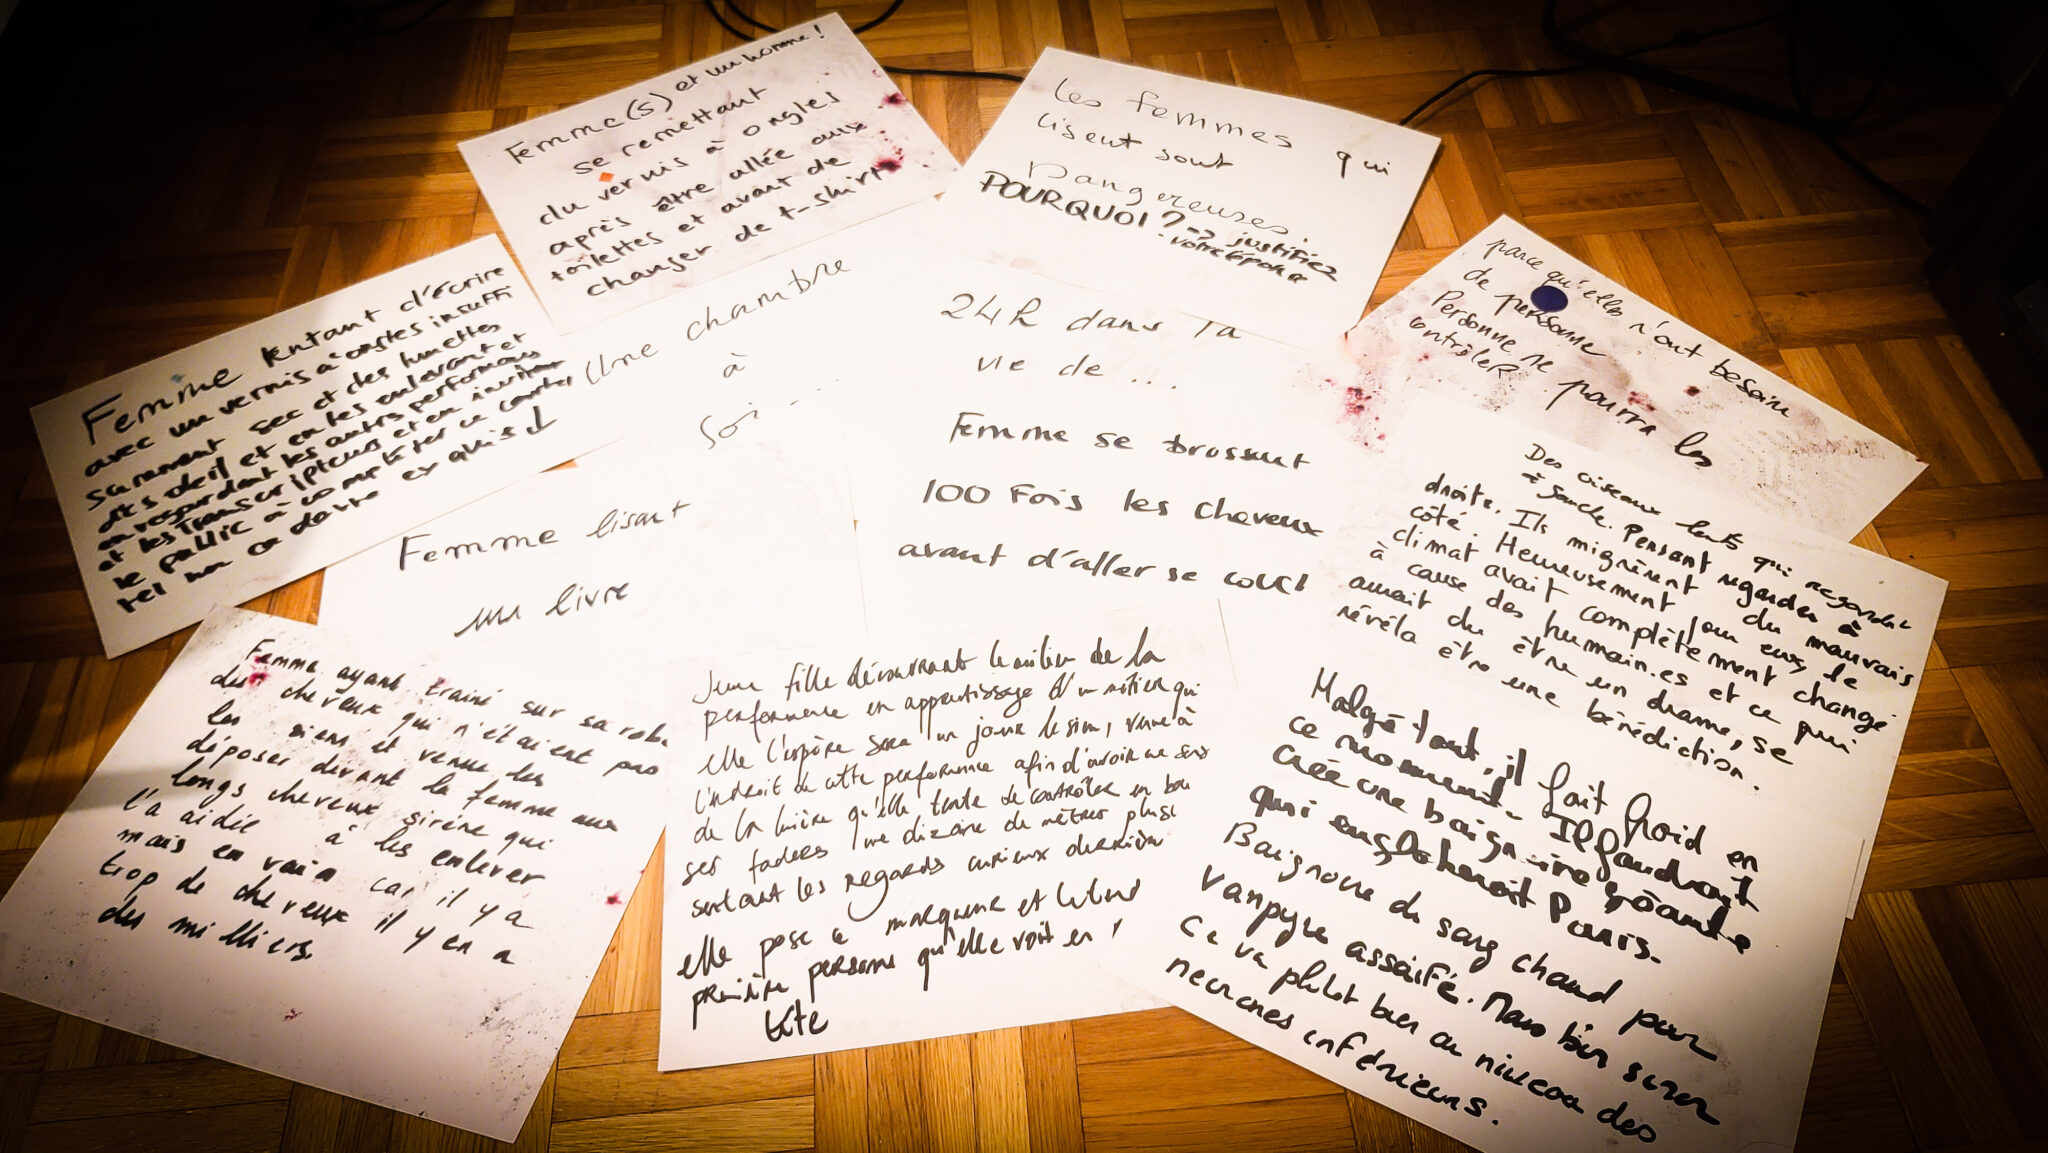 Femme(s) et un homme!
se remettant
du vernis à ongles
après être allée aux
toilettes et avant de
changer de t-shirt
les femmes qui
lisent sont
Dangereuses.
POURQUOI? -> justifiez
votre réponse
parce qu'elles n'ont besoin
de personne
Personne ne pourra les
contrôler
Femme tentant d'écrire
avec un vernis à ongles insuffi
samment sec et des lunettes
de soleil et en les enlevant et
en regardant les autres performeurs
et les transcripteurs et en invitant
le public à compléter ce
tel un cadavre exquis
Une chambre
à
soi...
24h dans la
vie de ...
Femme se brossant
100 fois les cheveux
avant d'aller se couc
Femme lisant
un livre
Des oiseaux lents qui regardent
à gauche. Pensant regarder à
droite. Ils migrèrent du mauvais
côté. Heureusement pour eux, le
climat avait complètement changé
à cause des humain.es et ce qui
aurait du être un drame, se
révéla être une bénédiction.
Femme ayant trainé sur sa robe
des cheveux qui n'étaient pas
les siens et venue les
déposer devant la femme aux
longs cheveux sirène qui
l'a aidée à les enlever
mais en vain car il y a
trop de cheveux il y en a
des milliers.
Jeune fille découvrant le milieu de la
performance en apprentissage d'un métier qui
elle l'espère sera un jour le sien, venue à
l'endroit de cette performance afin d'avoir un sens
de la lumière qu'elle tente de contrôler en bou
ses faders une dizaine de mètres plus
sentant les regards curieux derrière
elle pose le marqueur et
première personne qu'elle voit en
tête
Malgré tout, il fait froid en
ce moment. Il faudrait
créer une baignoire géante
qui engloberait Paris.
Baignoire de sang chaud pour
vampyre assoiffé. Mais bien sûr
Ca va plutot bien au niveau des
neurones inférieurs.